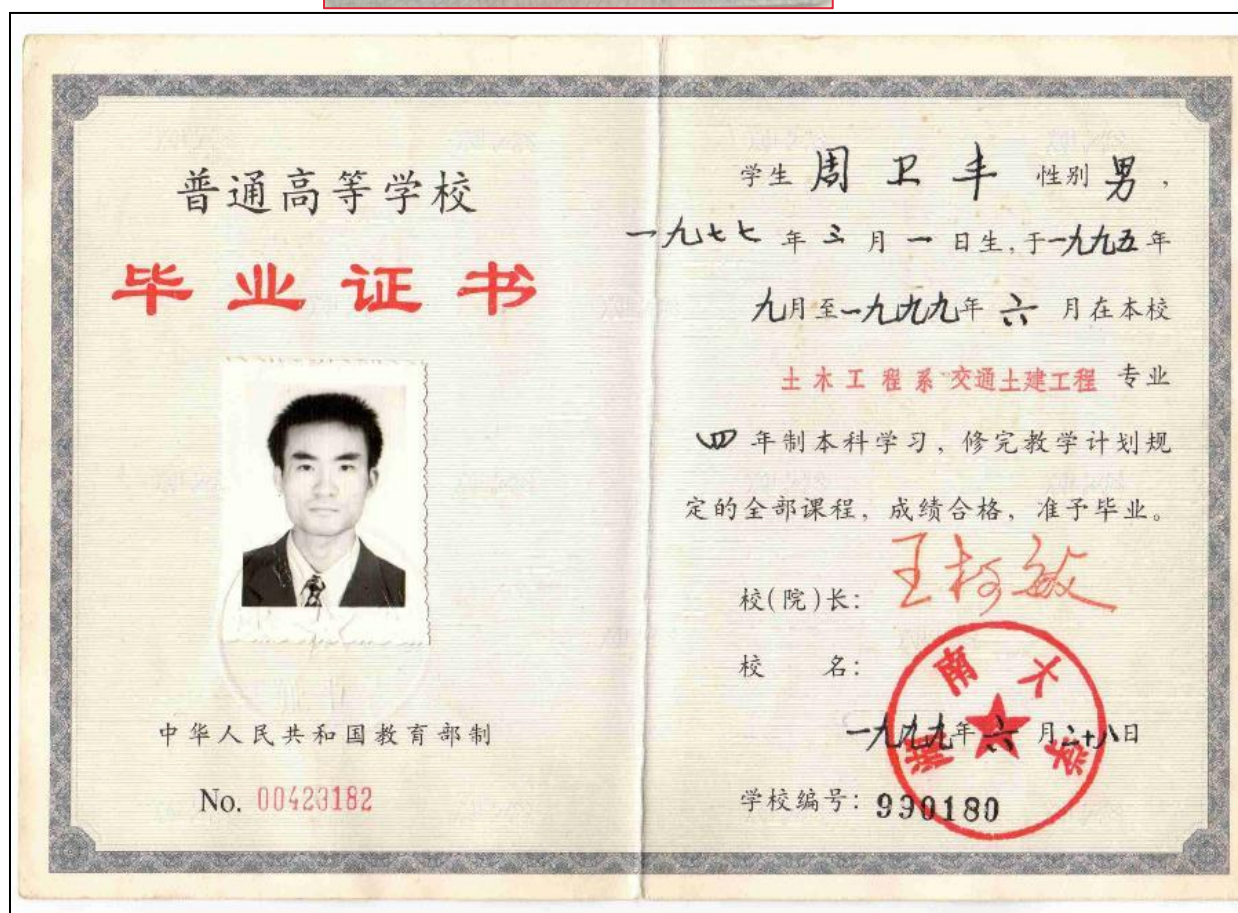 普通高等学校
毕业证书
中华人民共和国教育部制
No. 00423182
学生 周卫丰 性别 男,
一九七七年三月一日生,于一九九五年
九月至一九九九年六月在本校
土木工程系交通土建工程 专业
四年制本科学习,修完教学计划规
定的全部课程,成绩合格,准予毕业。
校(院)长: 王柯敏
校 名: 湖南大学
一九九九年六月二十八日
学校编号: 990180